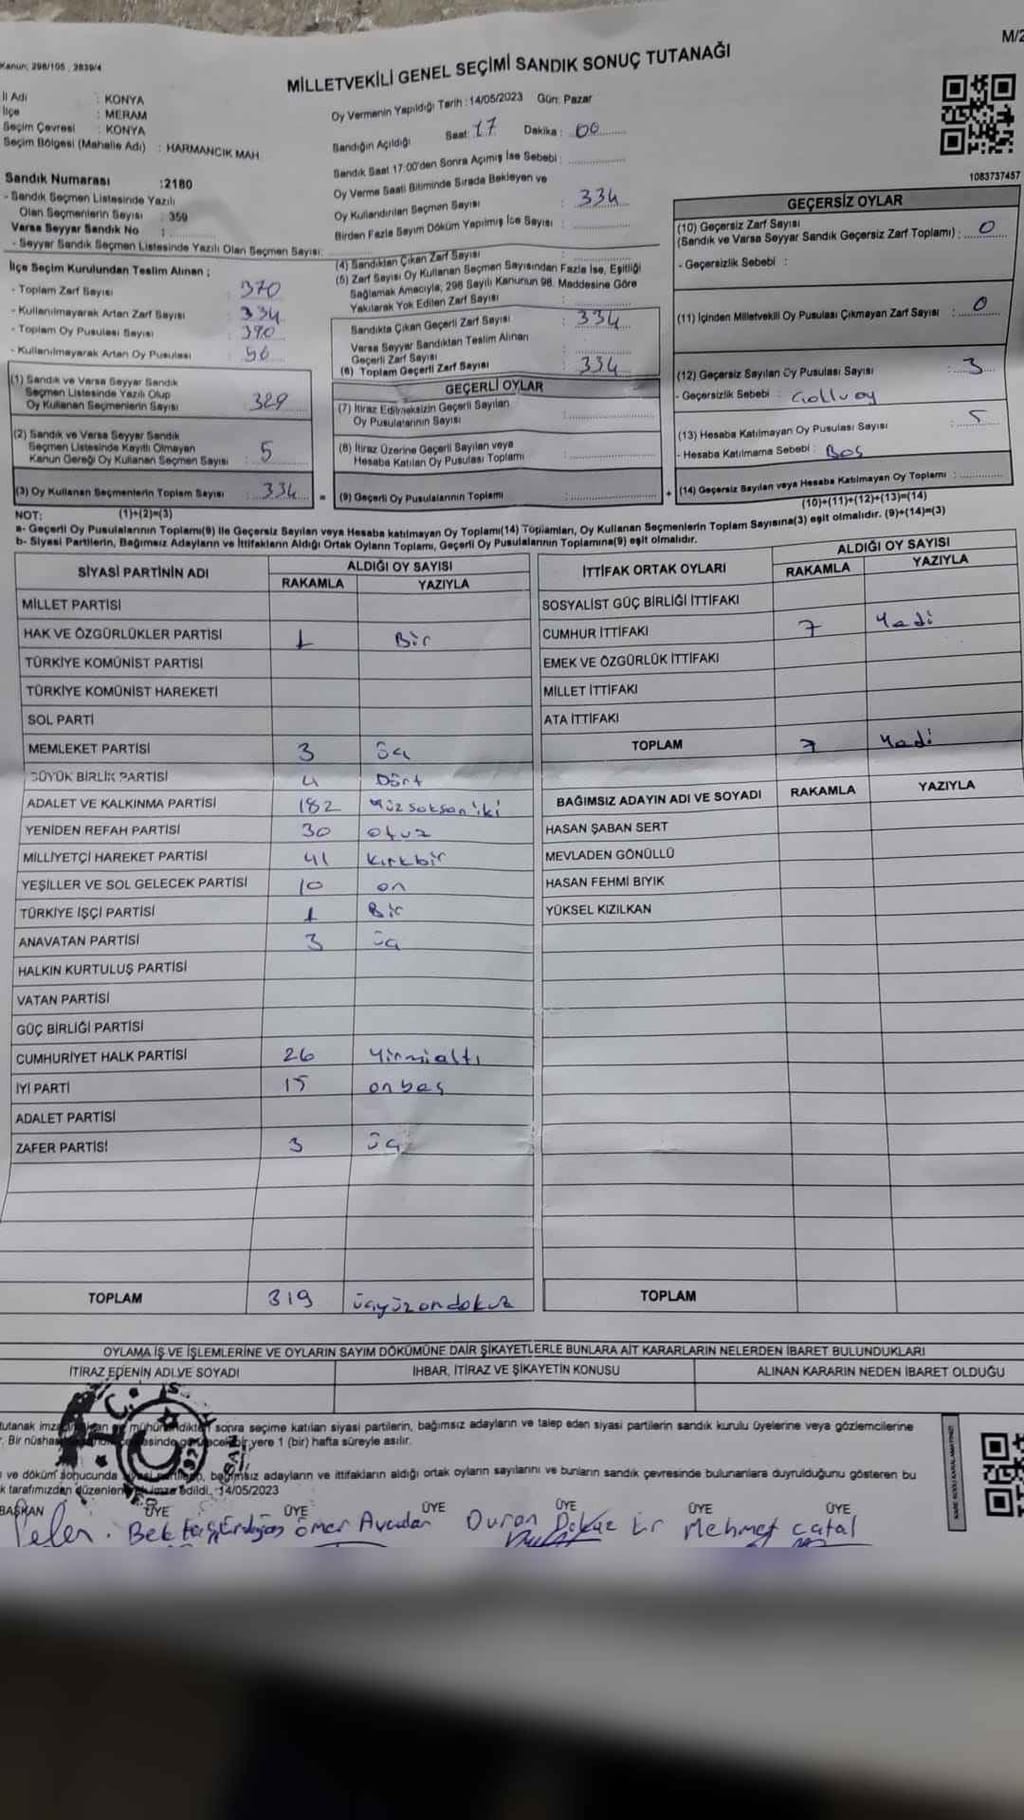 M/2
Kanun: 298/105 , 2839/4
MİLLETVEKİLİ GENEL SEÇİMİ SANDIK SONUÇ TUTANAĞI
İl Adı : KONYA
İlçe : MERAM
Seçim Çevresi : KONYA
Seçim Bölgesi (Mahalle Adı) : HARMANCIK MAH
Sandık Numarası :2180
- Sandık Seçmen Listesinde Yazılı
Olan Seçmenlerin Sayısı : 359
Varsa Seyyar Sandık No :
- Seyyar Sandık Seçmen Listesinde Yazılı Olan Seçmen Sayısı:
Oy Vermenin Yapıldığı Tarih : 14/05/2023 Gün: Pazar
Sandığın Açıldığı Saat: 17 Dakika : 00
Sandık Saat 17:00'den Sonra Açımış İse Sebebi :
Oy Verme Saati Bitiminde Sırada Bekleyen ve
Oy Kullandırılan Seçmen Sayısı : 334
Birden Fazla Sayım Döküm Yapılmış İse Sayısı :
1083737457
İlçe Seçim Kurulundan Teslim Alınan ;
- Toplam Zarf Sayısı : 370
- Kullanılmayarak Artan Zarf Sayısı : 334
- Toplam Oy Pusulası Sayısı : 390
- Kullanılmayarak Artan Oy Pusulası : 56
(1) Sandık ve Varsa Seyyar Sandık
Seçmen Listesinde Yazılı Olup
Oy Kullanan Seçmenlerin Sayısı : 329
(2) Sandık ve Varsa Seyyar Sandık
Seçmen Listesinde Kayıtlı Olmayan
Kanun Gereği Oy Kullanan Seçmen Sayısı : 5
(3) Oy Kullanan Seçmenlerin Toplam Sayısı : 334
(1)+(2)=(3)
(4) Sandıktan Çıkan Zarf Sayısı
(5) Zarf Sayısı Oy Kullanan Seçmen Sayısından Fazla İse, Eşitliği
Sağlamak Amacıyla, 298 Sayılı Kanunun 98. Maddesine Göre
Yakılarak Yok Edilen Zarf Sayısı :
Sandıkta Çıkan Geçerli Zarf Sayısı : 334
Varsa Seyyar Sandıktan Teslim Alınan
Geçerli Zarf Sayısı :
(6) Toplam Geçerli Zarf Sayısı : 334
GEÇERLİ OYLAR
(7) İtiraz Edilmeksizin Geçerli Sayılan
Oy Pusulalarının Sayısı :
(8) İtiraz Üzerine Geçerli Sayılan veya
Hesaba Katılan Oy Pusulası Toplamı :
= (9) Geçerli Oy Pusulalarının Toplamı :
GEÇERSİZ OYLAR
(10) Geçersiz Zarf Sayısı
(Sandık ve Varsa Seyyar Sandık Geçersiz Zarf Toplamı) : 0
- Geçersizlik Sebebi :
(11) İçinden Milletvekili Oy Pusulası Çıkmayan Zarf Sayısı : 0
(12) Geçersiz Sayılan Oy Pusulası Sayısı : 3
- Geçersizlik Sebebi :
(13) Hesaba Katılmayan Oy Pusulası Sayısı : 5
- Hesaba Katılmama Sebebi : Boş
+ (14) Geçersiz Sayılan veya Hesaba Katılmayan Oy Toplamı :
(10)+(11)+(12)+(13)=(14)
NOT:
a- Geçerli Oy Pusulalarının Toplamı(9) ile Geçersiz Sayılan veya Hesaba katılmayan Oy Toplamı(14) Toplamları, Oy Kullanan Seçmenlerin Toplam Sayısına(3) eşit olmalıdır. (9)+(14)=(3)
b- Siyasi Partilerin, Bağımsız Adayların ve İttifakların Aldığı Ortak Oyların Toplamı, Geçerli Oy Pusulalarının Toplamına(9) eşit olmalıdır.
SİYASİ PARTİNİN ADI ALDIĞI OY SAYISI
RAKAMLA YAZIYLA
MİLLET PARTİSİ
HAK VE ÖZGÜRLÜKLER PARTİSİ 1 Bir
TÜRKİYE KOMÜNİST PARTİSİ
TÜRKİYE KOMÜNİST HAREKETİ
SOL PARTİ
MEMLEKET PARTİSİ 3 üç
BÜYÜK BİRLİK PARTİSİ 4 Dört
ADALET VE KALKINMA PARTİSİ 182 Yüzseksen iki
YENİDEN REFAH PARTİSİ 30 otuz
MİLLİYETÇİ HAREKET PARTİSİ 41 kırkbir
YEŞİLLER VE SOL GELECEK PARTİSİ 10 on
TÜRKİYE İŞÇİ PARTİSİ 1 Bir
ANAVATAN PARTİSİ 3 üç
HALKIN KURTULUŞ PARTİSİ
VATAN PARTİSİ
GÜÇ BİRLİĞİ PARTİSİ
CUMHURİYET HALK PARTİSİ 26 Yirmialtı
İYİ PARTİ 15 onbeş
ADALET PARTİSİ
ZAFER PARTİSİ 3 üç
TOPLAM 319 üçyüzondokuz
İTTİFAK ORTAK OYLARI ALDIĞI OY SAYISI
RAKAMLA YAZIYLA
SOSYALİST GÜÇ BİRLİĞİ İTTİFAKI
CUMHUR İTTİFAKI 7 Yedi
EMEK VE ÖZGÜRLÜK İTTİFAKI
MİLLET İTTİFAKI
ATA İTTİFAKI
TOPLAM 7 Yedi
BAĞIMSIZ ADAYIN ADI VE SOYADI RAKAMLA YAZIYLA
HASAN ŞABAN SERT
MEVLADEN GÖNÜLLÜ
HASAN FEHMİ BIYIK
YÜKSEL KIZILKAN
TOPLAM
OYLAMA İŞ VE İŞLEMLERİNE VE OYLARIN SAYIM DÖKÜMÜNE DAİR ŞİKAYETLERLE BUNLARA AİT KARARLARIN NELERDEN İBARET BULUNDUKLARI
İTİRAZ EDENİN ADI VE SOYADI İHBAR, İTİRAZ VE ŞİKAYETİN KONUSU ALINAN KARARIN NEDEN İBARET OLDUĞU
tutanak sonra seçime katılan siyasi partilerin, bağımsız adayların ve talep eden siyasi partilerin sandık kurulu üyelerine veya gözlemcilerine
. Bir yere 1 (bir) hafta süreyle asılır.
ve döküm sonucunda bağımsız adayların ve ittifakların aldığı ortak oyların sayılarını ve bunların sandık çevresinde bulunanlara duyrulduğunu gösteren bu
tarafımızdan edildi. 14/05/2023
BAŞKAN ÜYE ÜYE ÜYE ÜYE ÜYE ÜYE
Ömer Duran Mehmet Çatal